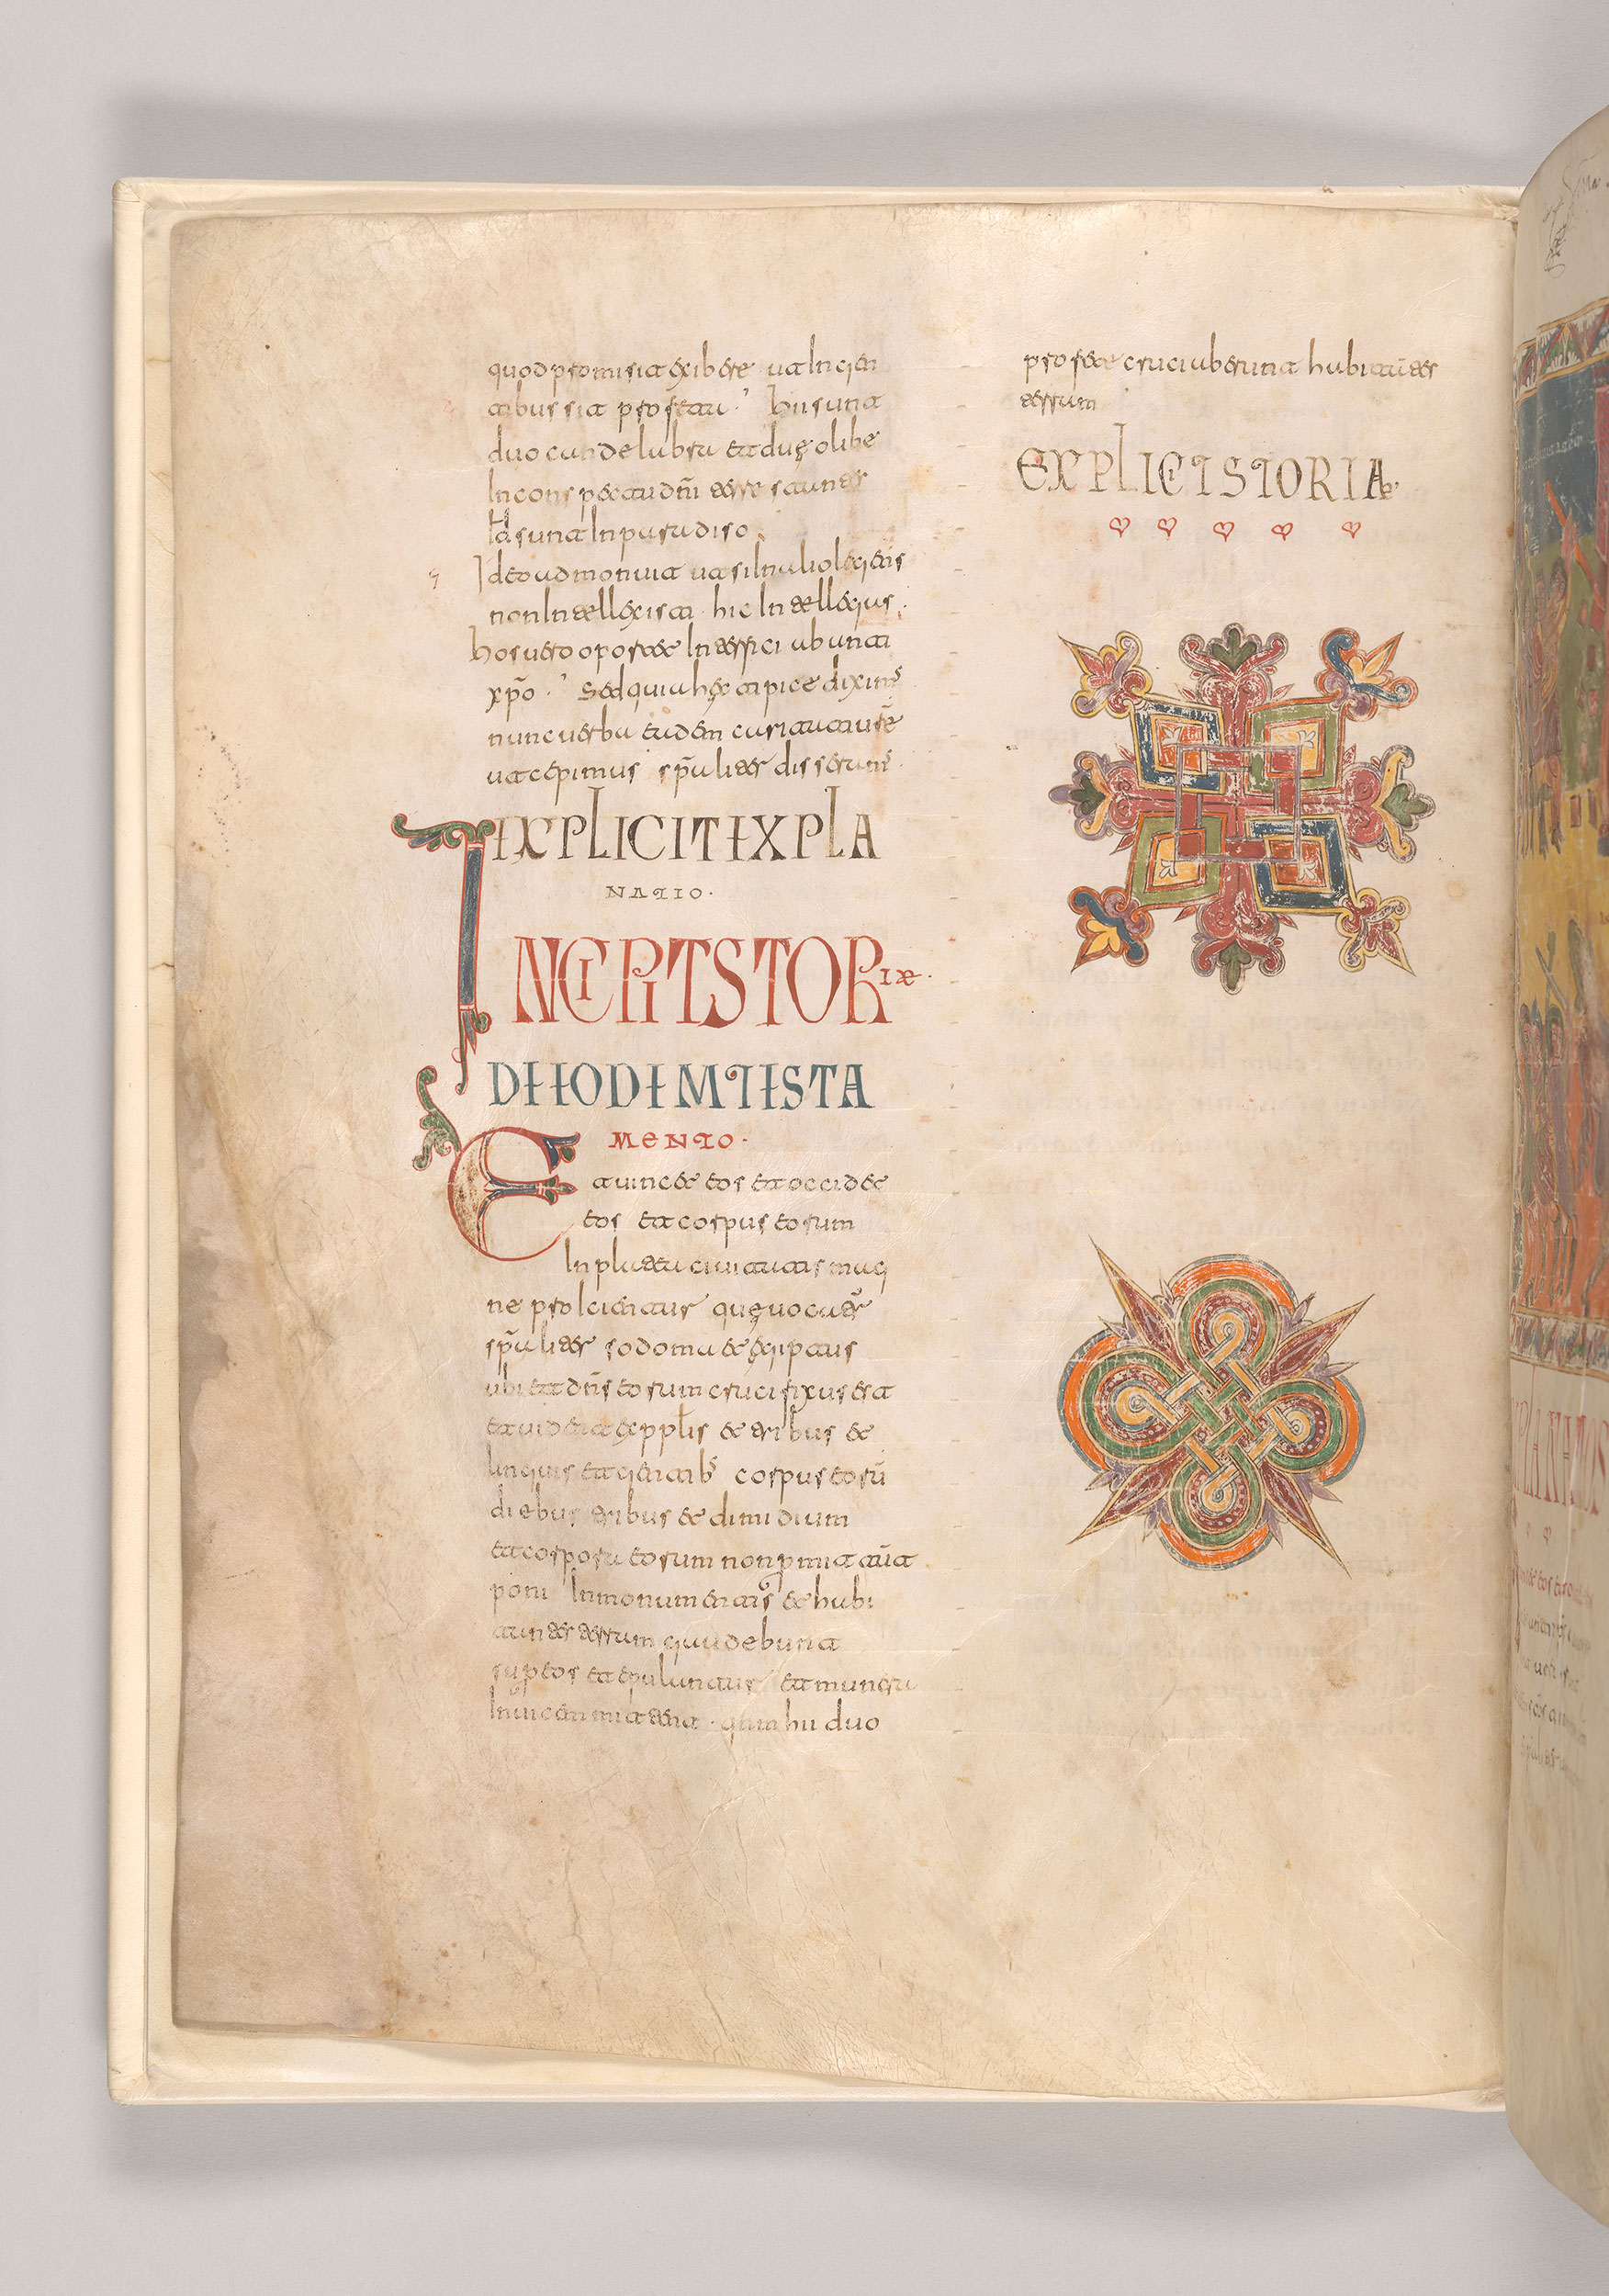 quod promisit exibere ut in gen
tibus sit profetatu. hii sunt
duo candelabra et duę olibe
in conspectu dn̄i terre stantes
Id sunt in paradiso
Ideo admonuit ut si in alio legens
non intellexisti hic intellegas.
hos uero oportet interfici ab anti
xp̄o. Sed quia hęc
nunc uerba eadem
ut cepimus sp̄aliter disseram̄s.
EXPLICIT EXPLA
NATIO.
INCIPIT STORIAE.
DE EODEM TESTA
MENTO.
Et uincet eos et occidet
eos et corpus eorum
In platea ciuitatis mag
ne proIcientur quę uocatur
sp̄aliter sodoma et egiptus
ubi et dn̄s eorum crucifixus est
et uident ex pplis et tribus et
linguis et gentibs corpus eorū
diebus tribus et dimidium
et corpora eorum non
poni In monumentis et habi
tantes terram gaudebunt
super eos et epulantur et munera
Inuicem mittent. qnm hii duo
profete cruciaberunt habitātes
terram
EXPLICIT STORIAE.